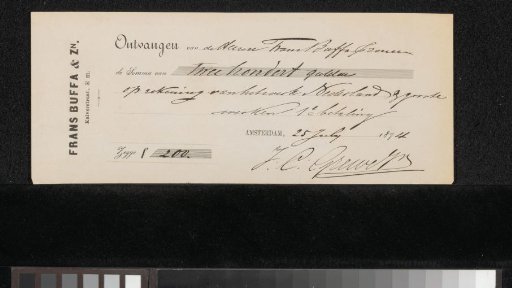 FRANS BUFFA & ZN.
Kalverstraat,
Ontvangen van de Heeren Frans Buffa & Zonen
de Somma van twee hondert gulden
op rekening van het werk Nederland
werken 1e betaling
AMSTERDAM, 25 July 1874
Zegge f 200.
J. C.